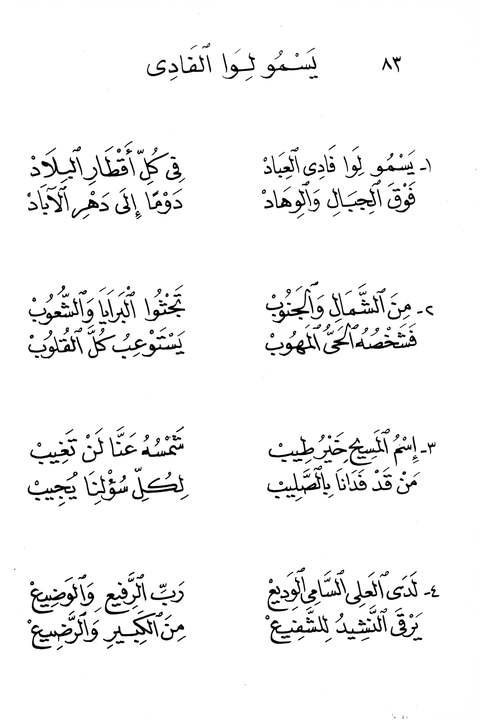 ٨٣ يَسْمُو لِوَا ٱلْفَادِى
١- يَسْمُو لِوَا فَادِي ٱلْعِبَادْ فِي كُلِّ أَقْطَارِ ٱلْبِلَادْ
فَوْقَ ٱلْجِبَالِ وَٱلْوِهَادْ دَوْمًا إِلَى دَهْرِ ٱلْآبَادْ
٢- مِنَ ٱلشَّمَالِ وَٱلْجَنُوبْ تَجْثُوا ٱلْبَرَايَا وَٱلشُّعُوبْ
فَشَخْصُهُ ٱلْحَيُّ ٱلْمَهُوبْ يَسْتَوْعِبُ كُلَّ ٱلْقُلُوبْ
٣- إِسْمُ ٱلْمَسِيحِ خَيْرُ طِيبْ شَمْسُهُ عَنَّا لَنْ تَغِيبْ
مَنْ قَدْ فَدَانَا بِٱلصَّلِيبْ لِكُلِّ سُؤْلِنَا يُجِيبْ
٤- لَدَى ٱلْعَلِي ٱلسَّامِي ٱلْوَدِيعْ رَبِّ ٱلرَّفِيعِ وَٱلْوَضِيعْ
يَرْقَى ٱلنَّشِيدُ لِلشَّفِيعْ مِنَ ٱلْكَبِيرِ وَٱلرَّضِيعْ